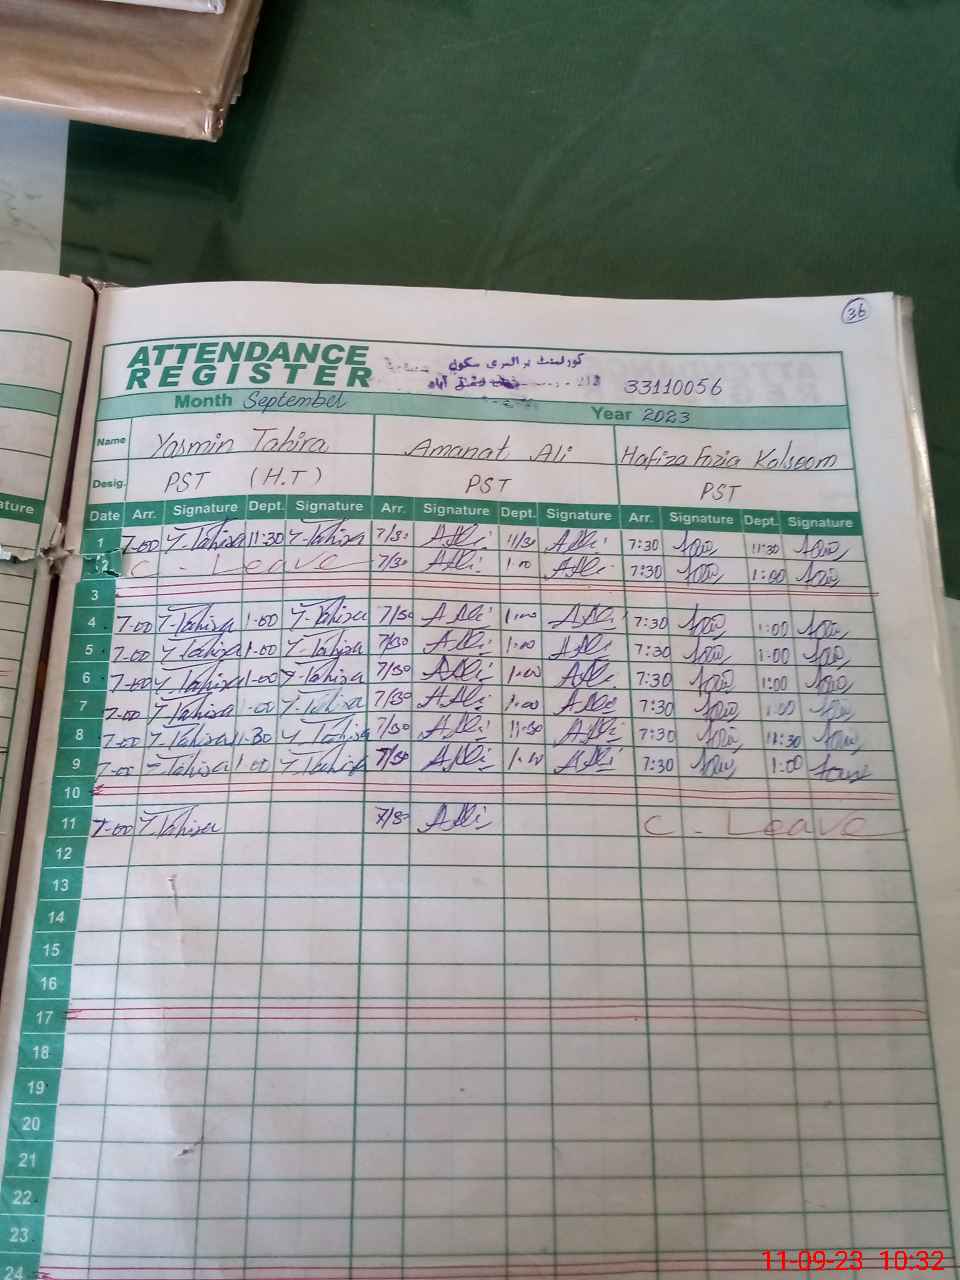 36
ATTENDANCE
REGISTER
گورنمنٹ پرائمری سکول
فیصل آباد
33110056
Month September Year 2023
Name Yasmin Tahira Amanat Ali Hafiza Fozia Kalsoom
Desig. PST (H.T) PST PST
ature
Date Arr. Signature Dept. Signature Arr. Signature Dept. Signature Arr. Signature Dept. Signature
1 7-00 Y-Tahira 11:30 Y-Tahira 7/30 A Ali 11/30 A Ali 7:30 11:30
2 C - Leave 7/30 A Ali 1.00 A Ali 7:30 1:00
3
4 7-00 Y-Tahira 1-00 Y-Tahira 7/30 A Ali 1.00 A Ali 7:30 1:00
5 7-00 Y-Tahira 1-00 Y-Tahira 7/30 A Ali 1.00 A Ali 7:30 1:00
6 7-00 Y-Tahira 1-00 Y-Tahira 7/30 A Ali 1.00 A Ali 7:30 1:00
7 7-00 Y-Tahira 1-00 Y-Tahira 7/30 A Ali 1.00 A Ali 7:30 1:00
8 7-00 Y-Tahira 11-30 Y-Tahira 7/30 A Ali 11-30 A Ali 7:30 11:30
9 7-00 Y-Tahira 1-00 Y-Tahira 7/30 A Ali 1.00 A Ali 7:30 1:00
10
11 7-00 Y-Tahira 7/30 A Ali C - Leave
12
13
14
15
16
17
18
19
20
21
22
23
24
11-09-23 10:32